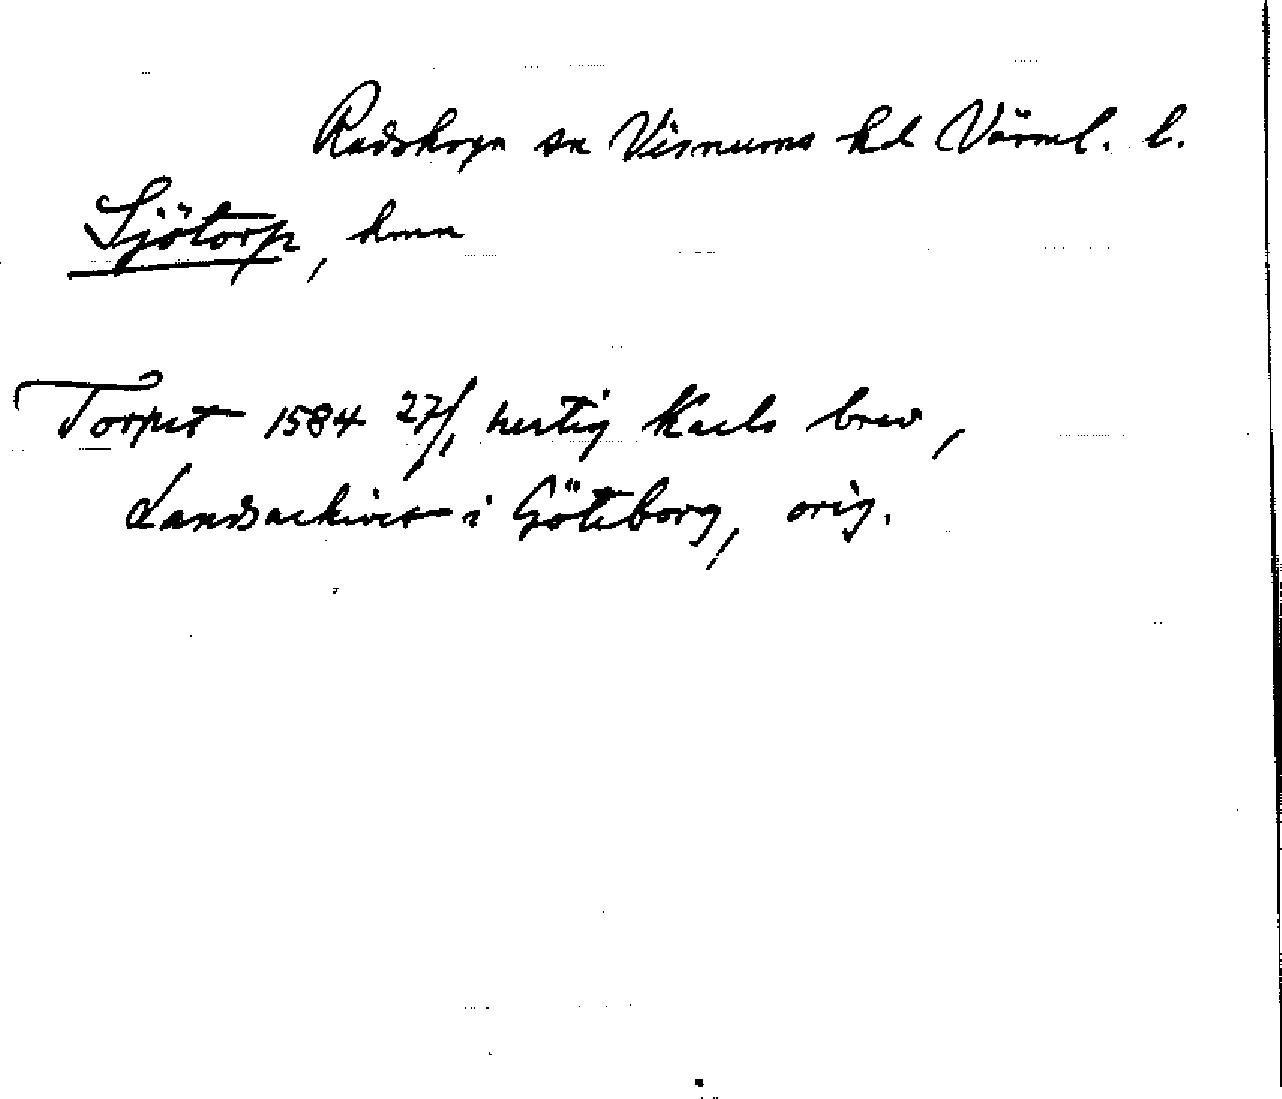 Rudskoga sn Visnums hd Värml. l.
Sjötorp, hmn
Torpet 1584 27/1 hertig Karls brev,
Landsarkivet i Göteborg, orig.